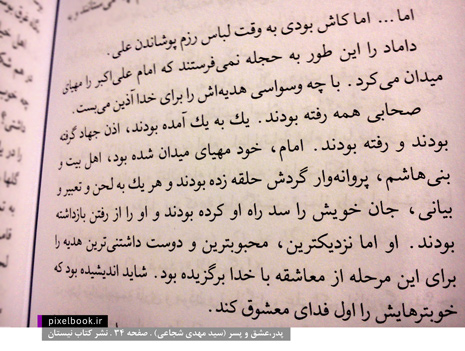 اما... اما کاش بودی به وقت لباس رزم پوشاندن علی.
داماد را این طور به حجله نمی‌فرستند که امام علی‌اکبر را مهیای
میدان می‌کرد. با چه وسواسی هدیه‌اش را برای خدا آذین می‌بست.
صحابی همه رفته بودند. یك به یك آمده بودند، اذن جهاد گرفته
بودند و رفته بودند. امام، خود مهیای میدان شده بود، اهل بیت و
بنی‌هاشم، پروانه‌وار گردش حلقه زده بودند و هر یك به لحن و تعبیر و
بیانی، جان خویش را سد راه او کرده بودند و او را از رفتن بازداشته
بودند. او اما نزدیکترین، محبوبترین و دوست داشتنی‌ترین هدیه را
برای این مرحله از معاشقه با خدا برگزیده بود. شاید اندیشیده بود که
خوبترهایش را اول فدای معشوق کند.
pixelbook.ir
پدر،عشق و پسر (سید مهدی شجاعی) . صفحه ۳۴ . نشر کتاب نیستان